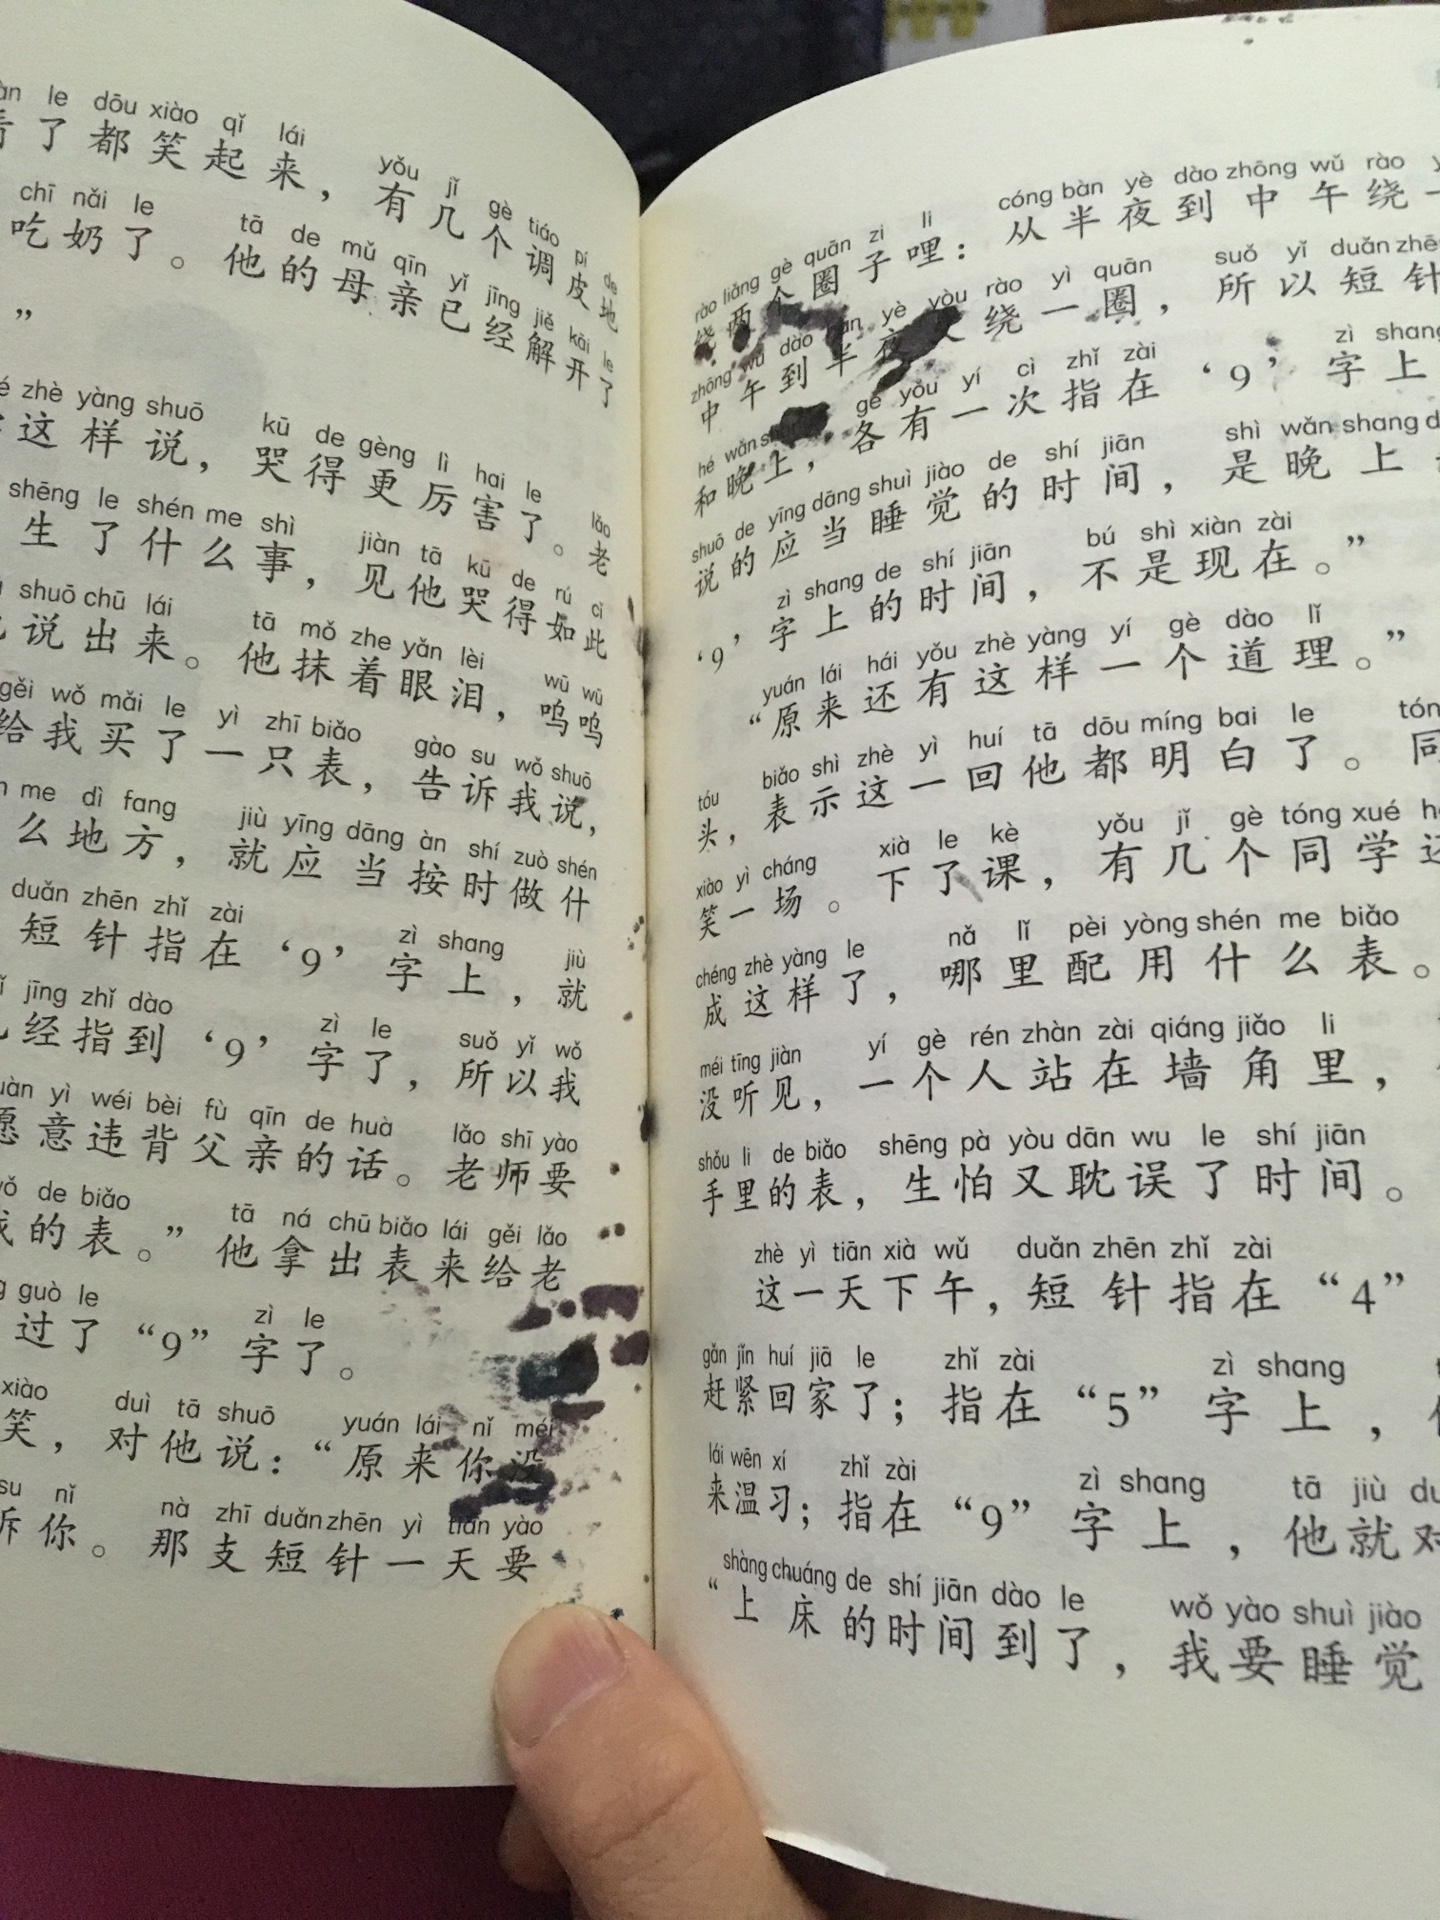 le dōu xiào qǐ lái yǒu jǐ gè tiáo pí de
了都笑起来，有几个调皮地
chī nǎi le tā de mǔ qīn yǐ jīng jiě kāi le
吃奶了。他的母亲已经解开了
”
zhè yàng shuō kū de gèng lì hai le lǎo
这样说，哭得更厉害了。老
shēng le shén me shì jiàn tā kū de rú cǐ
生了什么事，见他哭得如此
shuō chū lái tā mǒ zhe yǎn lèi wū wū
说出来。他抹着眼泪，呜呜
gěi wǒ mǎi le yì zhī biǎo gào su wǒ shuō
给我买了一只表，告诉我说，
me dì fang jiù yīng dāng àn shí zuò shén
么地方，就应当按时做什
duǎn zhēn zhǐ zài zì shang jiù
短针指在‘9’字上，就
jīng zhǐ dào zì le suǒ yǐ wǒ
经指到‘9’字了，所以我
yì wéi bèi fù qīn de huà lǎo shī yào
愿意违背父亲的话。老师要
de biǎo tā ná chū biǎo lái gěi lǎo
我的表。”他拿出表来给老
guò le zì le
过了“9”字了。
xiào duì tā shuō yuán lái nǐ méi
笑，对他说：“原来你没
su nǐ nà zhī duǎn zhēn yì tiān yào
诉你。那支短针一天要
rào liǎng gè quān zi li cóng bàn yè dào zhōng wǔ rào
绕两个圈子哩：从半夜到中午绕一
zhōng wǔ dào bàn yè yòu rào yì quān suǒ yǐ duǎn zhēn
中午到半夜又绕一圈，所以短针
hé wǎn shang gè yǒu yí cì zhǐ zài zì shang
和晚上，各有一次指在‘9’字上
shuō de yīng dāng shuì jiào de shí jiān shì wǎn shang
说的应当睡觉的时间，是晚上
zì shang de shí jiān bú shì xiàn zài
‘9’字上的时间，不是现在。”
yuán lái hái yǒu zhè yàng yí gè dào lǐ
“原来还有这样一个道理。”
tóu biǎo shì zhè yì huí tā dōu míng bai le
头，表示这一回他都明白了。同
xiào yì cháng xià le kè yǒu jǐ gè tóng xué
笑一场。下了课，有几个同学还
chéng zhè yàng le nǎ lǐ pèi yòng shén me biǎo
成这样了，哪里配用什么表。
méi tīng jiàn yí gè rén zhàn zài qiáng jiǎo li
没听见，一个人站在墙角里，
shǒu li de biǎo shēng pà yòu dān wu le shí jiān
手里的表，生怕又耽误了时间。
zhè yì tiān xià wǔ duǎn zhēn zhǐ zài
这一天下午，短针指在“4”
gǎn jǐn huí jiā le zhǐ zài zì shang
赶紧回家了；指在“5”字上，
lái wēn xí zhǐ zài zì shang tā jiù
来温习；指在“9”字上，他就对
shàng chuáng de shí jiān dào le wǒ yào shuì jiào
“上床的时间到了，我要睡觉